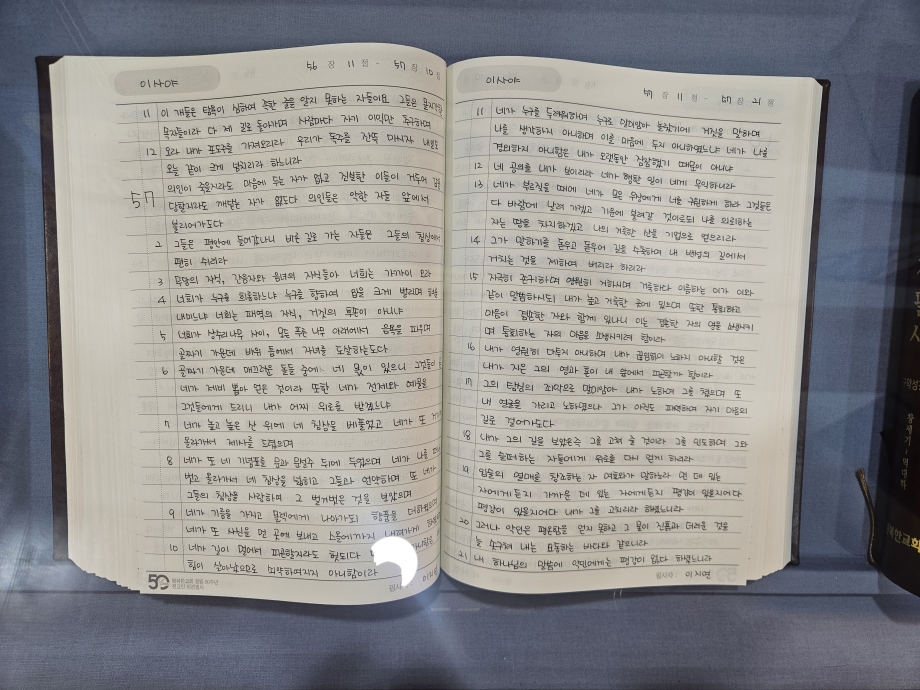 이사야
56 장 11 절 - 57 장 10 절
11 이 개들은 탐욕이 심하여 족한 줄을 알지 못하는 자들이요 그들은 몰지각한
목자들이라 다 제 길로 돌아가며 사람마다 자기 이익만 추구하며
12 오라 내가 포도주를 가져오리라 우리가 독주를 잔뜩 마시자 내일도
오늘 같이 크게 넘치리라 하느니라
57 의인이 죽을지라도 마음에 두는 자가 없고 진실한 이들이 거두어 감을
당할지라도 깨닫는 자가 없도다 의인들은 악한 자들 앞에서
불리어가도다
2 그들은 평안에 들어갔나니 바른 길로 가는 자들은 그들의 침상에서
편히 쉬리라
3 무당의 자식, 간음자와 음녀의 자식들아 너희는 가까이 오라
4 너희가 누구를 희롱하느냐 누구를 향하여 입을 크게 벌리며 혀를
내미느냐 너희는 패역의 자식, 거짓의 후손이 아니냐
5 너희가 상수리나무 사이, 모든 푸른 나무 아래에서 음욕을 피우며
골짜기 가운데 바위 틈에서 자녀를 도살하는도다
6 골짜기 가운데 매끄러운 돌들 중에 네 몫이 있으니 그것들이
네가 제비 뽑아 얻은 것이라 또한 네가 전제와 예물을
그것들에게 드리니 내가 어찌 위로를 받겠느냐
7 네가 높고 높은 산 위에 네 침상을 베풀었고 네가 또
올라가서 제사를 드렸으며
8 네가 또 네 기념표를 문과 문설주 뒤에 두었으며 네가 나를
벗고 올라가서 네 침상을 넓히고 그들과 언약하며 또 네가
그들의 침상을 사랑하여 그 벌거벗은 것을 보았으며
9 네가 기름을 가지고 몰렉에게 나아가되 향품을 더하였으며
네가 또 사신을 먼 곳에 보내고 스올에까지 내려가게
10 네가 길이 멀어서 피곤할지라도 헛되다
힘이 살아났으므로 쇠약하여지지 아니함이라
50
이사야
57 장 11 절 - 57 장 21 절
11 네가 누구를 두려워하며 누구로 말미암아 놀랐기에 거짓을 말하며
나를 생각하지 아니하며 이를 마음에 두지 아니하였느냐 네가 나를
경외하지 아니함은 내가 오랫동안 잠잠했기 때문이 아니냐
12 네 공의를 내가 보이리라 네가 행한 일이 네게 무익하니라
13 네가 부르짖을 때에 네가 모은 우상들에게 너를 구원하게 하라 그것들은
다 바람에 날려 가겠고 기운에 불려갈 것이로되 나를 의뢰하는
자는 땅을 차지하겠고 나의 거룩한 산을 기업으로 얻으리라
14 그가 말하기를 돋우고 돋우어 길을 수축하여 내 백성의 길에서
거치는 것을 제하여 버리라 하리라
15 지극히 존귀하며 영원히 거하시며 거룩하다 이름하는 이가 이와
같이 말씀하시되 내가 높고 거룩한 곳에 있으며 또한 통회하고
마음이 겸손한 자와 함께 있나니 이는 겸손한 자의 영을 소생시키
며 통회하는 자의 마음을 소생시키려 함이라
16 내가 영원히 다투지 아니하며 내가 끊임없이 노하지 아니할 것은
내가 지은 그의 영과 혼이 내 앞에서 피곤할까 함이라
17 그의 탐심의 죄악으로 말미암아 내가 노하여 그를 쳤으며 또
내 얼굴을 가리고 노하였으나 그가 아직도 패역하여 자기 마음의
길로 걸어가도다
18 내가 그의 길을 보았은즉 그를 고쳐 줄 것이라 그를 인도하며 그와
그를 슬퍼하는 자들에게 위로를 다시 얻게 하리라
19 입술의 열매를 창조하는 자 여호와가 말하노라 먼 데 있는
자에게든지 가까운 데 있는 자에게든지 평강이 있을지어다
평강이 있을지어다 내가 그를 고치리라 하셨느니라
20 그러나 악인은 평온함을 얻지 못하고 그 물이 진흙과 더러운 것을
늘 솟구쳐 내는 요동하는 바다와 같으니라
21 내 하나님의 말씀에 악인에게는 평강이 없다 하셨느니라
필사자 : 이지연